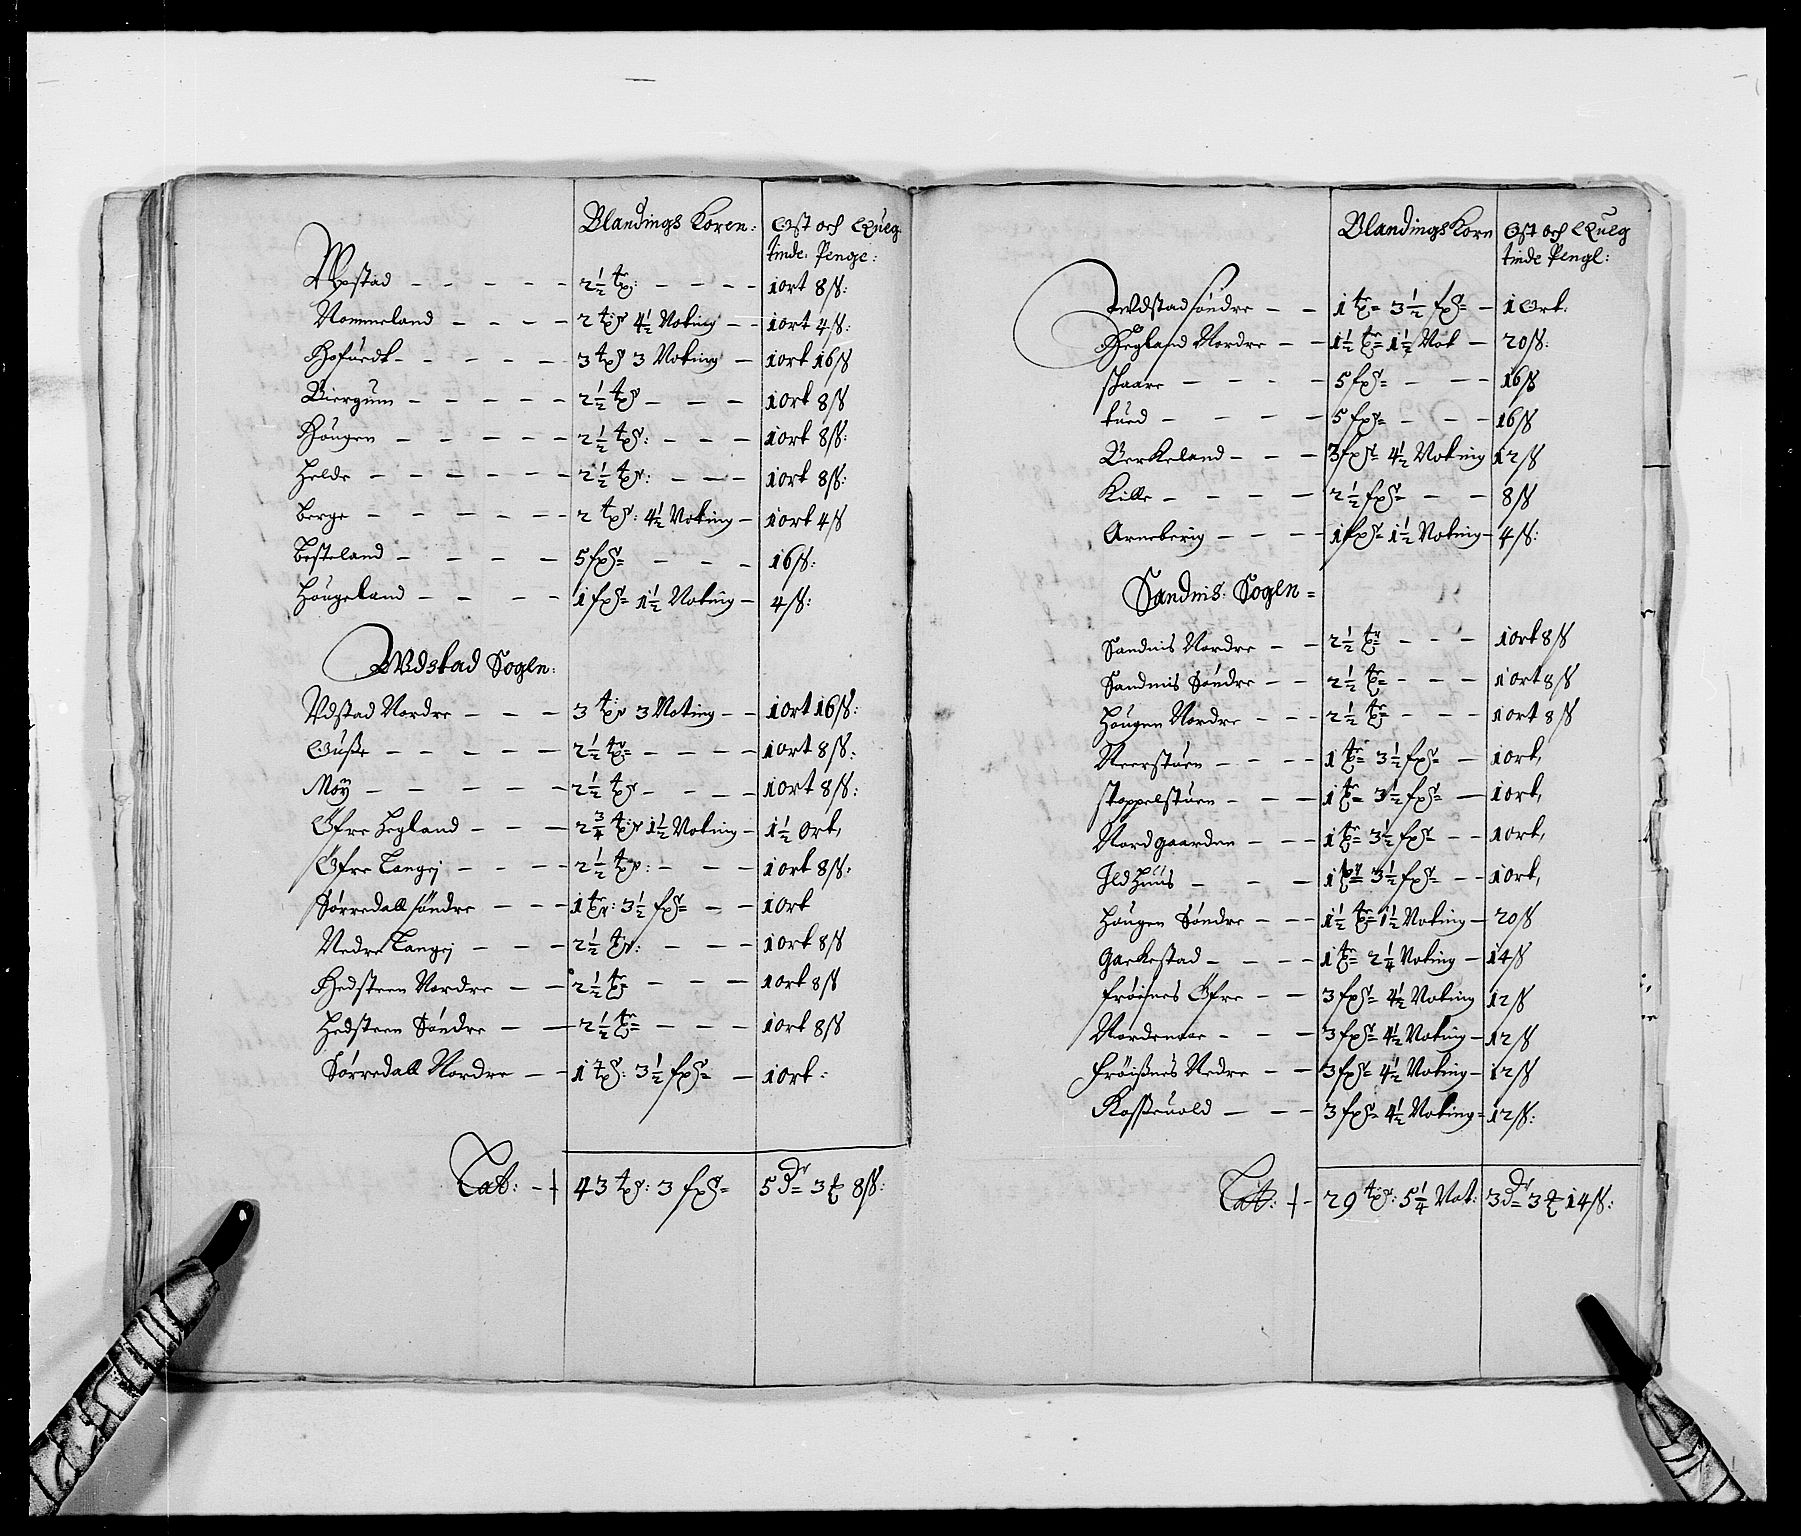 Blandings Koren: Ost och Queg
tinde Penge:
Opstad - - - - - 2½ tr: - - - - 1 ort 8 ß:
Nommeland - - - - 2 tr 4½ Noting - - 1 ort 4 ß:
Hofuedt - - - - - 3 tr 3 Noting - 1 ort 16 ß
Biergum - - - - - 2½ tr - - - 1 ort 8 ß
Hougen - - - - - 2½ tr: - - - 1 ort 8 ß:
Helde - - - - - - 2½ tr: - - - 1 ort 8 ß:
Berge - - - - - - 2 tr: 4½ Noting - 1 ort 4 ß
Besteland - - - - 5 fxr - - - 16 ß:
Hougeland - - - - 1 fxr 1½ Noting - 4 ß:
Udstad Sogen:
Udstad Nordre - - - 3 tr 3 Noting - - 1 ort 16 ß:
Ouße - - - - - 2½ tr - - - - 1 ort 8 ß:
Moy - - - - - - 2½ tr - - - - 1 ort 8 ß:
Öfre Hegland - - - 2¾ tr 1½ Noting - 1½ ort,
Öfre Langej - - - - 2½ tr: - - - 1 ort 8 ß:
Sørredall søndre - - - 1 tr: 3½ fxr - - 1 ort
Nedre Langej - - - 2½ tr: - - - 1 ort 8 ß
Hedsteen Nordre - - 2½ tr - - - 1 ort 8 ß
Hedsteen Søndre - - 2½ tr - - - 1 ort 8 ß
Sørredall Nordre - - 1 tr: 3½ fxr - 1 ort:
Lat: - 43 tr: 3 fxr 5 Dr 3 ₰ 8 ß:
Blandings Korn Ost och Queg
tinde Penge:
Udstad søndre - - 1 tr 3½ fxr - 1 Ort:
Hegland Nordre - - 1½ tr 1½ Not - 20 ß:
skaare - - - - 5 fxr - - - 16 ß
tued - - - - 5 fxr - - - 16 ß
Berkeland - - - 3 fxr 4½ Noting 12 ß
Kille - - - - 2½ fxr - - 8 ß
Arneberig - - - - 1 fxr 1½ Noting - 4 ß:
Sandnis: Sogen
Sandnis Nordre - - 2½ tr - - - 1 ort 8 ß
Sandnis Søndre - - 2½ tr - - - 1 ort 8 ß
Hougen Nordre - - - 2½ tr - - - 1 ort 8 ß
Neerstuen - - - - 1 tr 3½ fxr - 1 ort,
stoppelstuen - - - 1 tr 3½ fxr - 1 ort,
Nordgaarden - - - 1 tr 3½ fxr - - 1 ort,
Ildhuus - - - 1 tr 3½ fxr - - 1 ort,
Hougen Søndre - - - 1½ tr 1½ Noting - 20 ß
Garkestad - - - - 1 tr 2¼ Noting - 14 ß
frøisnes Öfre - - 3 fxr 4½ Noting 12 ß
Nordenaae - - - 3 fxr 4½ Noting - 12 ß
frøisnes Nedre - - 3 fxr 4½ Noting - 12 ß
Rosseuold - - - 3 fxr 4½ Noting 12 ß:
Lat: - 29 tr: 5¼ Not: 3 Dr 3 ₰ 14 ß: